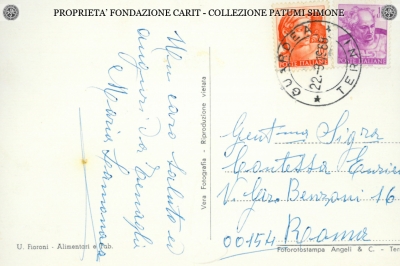 PROPRIETA' FONDAZIONE CARIT - COLLEZIONE PATUMI SIMONE
Un caro saluto ed
auguri da
Maria
U. Fioroni - Alimentari e Tab.
Vera Fotografia - Riproduzione vietata
POSTE ITALIANE
POSTE ITALIANE
TERNI
22-9
Gent.ma Sig.ra
Contessa
V. Benzoni 16
Roma
00154
Fotorotostampa Angeli & C. - Ter